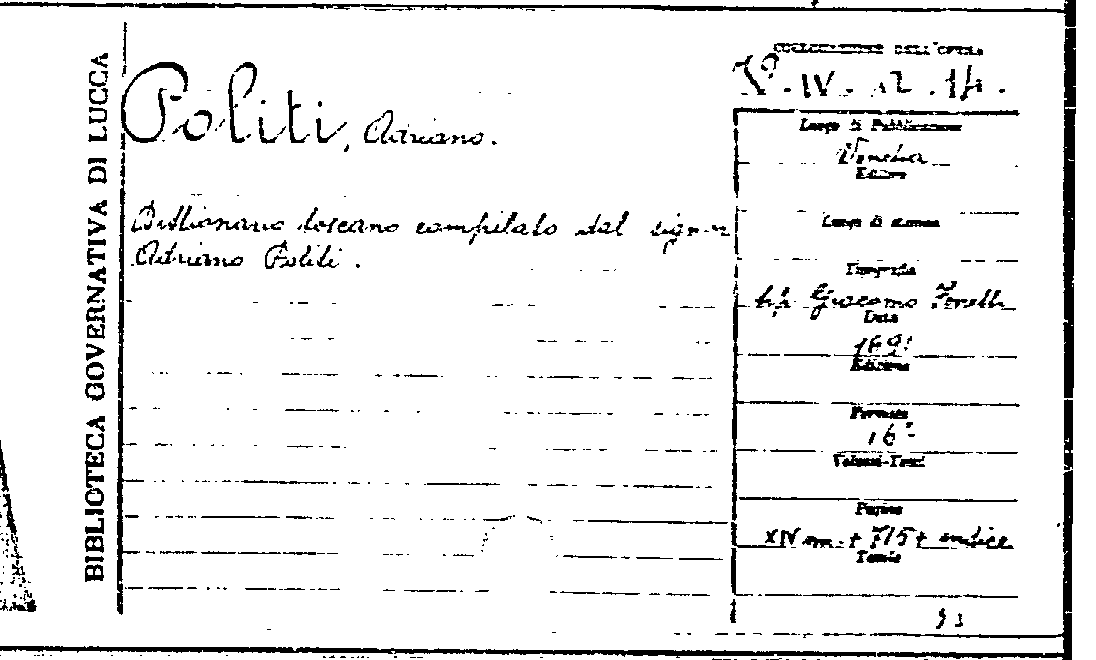 BIBLIOTECA GOVERNATIVA DI LUCCA
Politi, Adriano.
Dittionario toscano compilato dal signor
Adriano Politi.
COLLOCAZIONE DELL'OPERA
IV. 12. 14.
Luogo di Pubblicazione
Venezia
Editore
Luogo di stampa
Tipografia
tip. Giacomo Zonelli
Data
Edizione
Formato
16°
Volumi-Tomi
Pagine
XIV m. + 715 + indice
Tavole